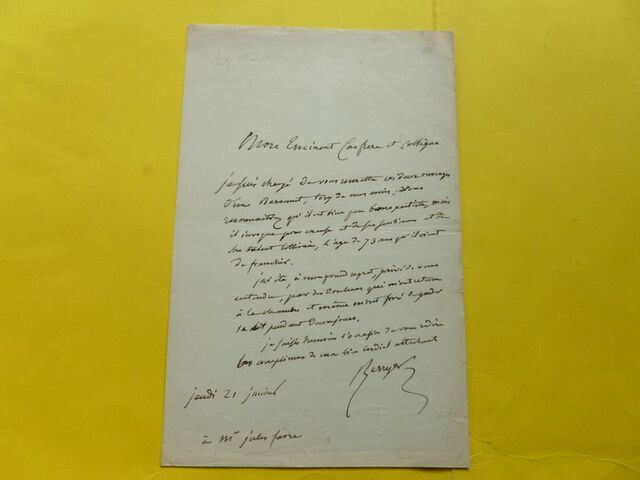 Mon Eminent Confrère et Collègue
je suis chargé de vous remettre ces deux ouvrages
d'un Baronnet, tory de mes amis. Vous
reconnaitrez qu'il est bien peu bonapartiste, mais
il invoque pour excuse et de ses opinions et de
son talent littéraire, l'âge de 73 ans qu'il vient
de franchir.
j'ai été, à mon grand regret, privé de vous
entendre, par des douleurs qui m'ont retenu
à la chambre et même m'ont forcé de garder
le lit pendant deux jours.
je saisis l'occasion de vous
les complimens de mon bien cordial attachement
Berryer
jeudi 21 janvier
à Mr jules favre